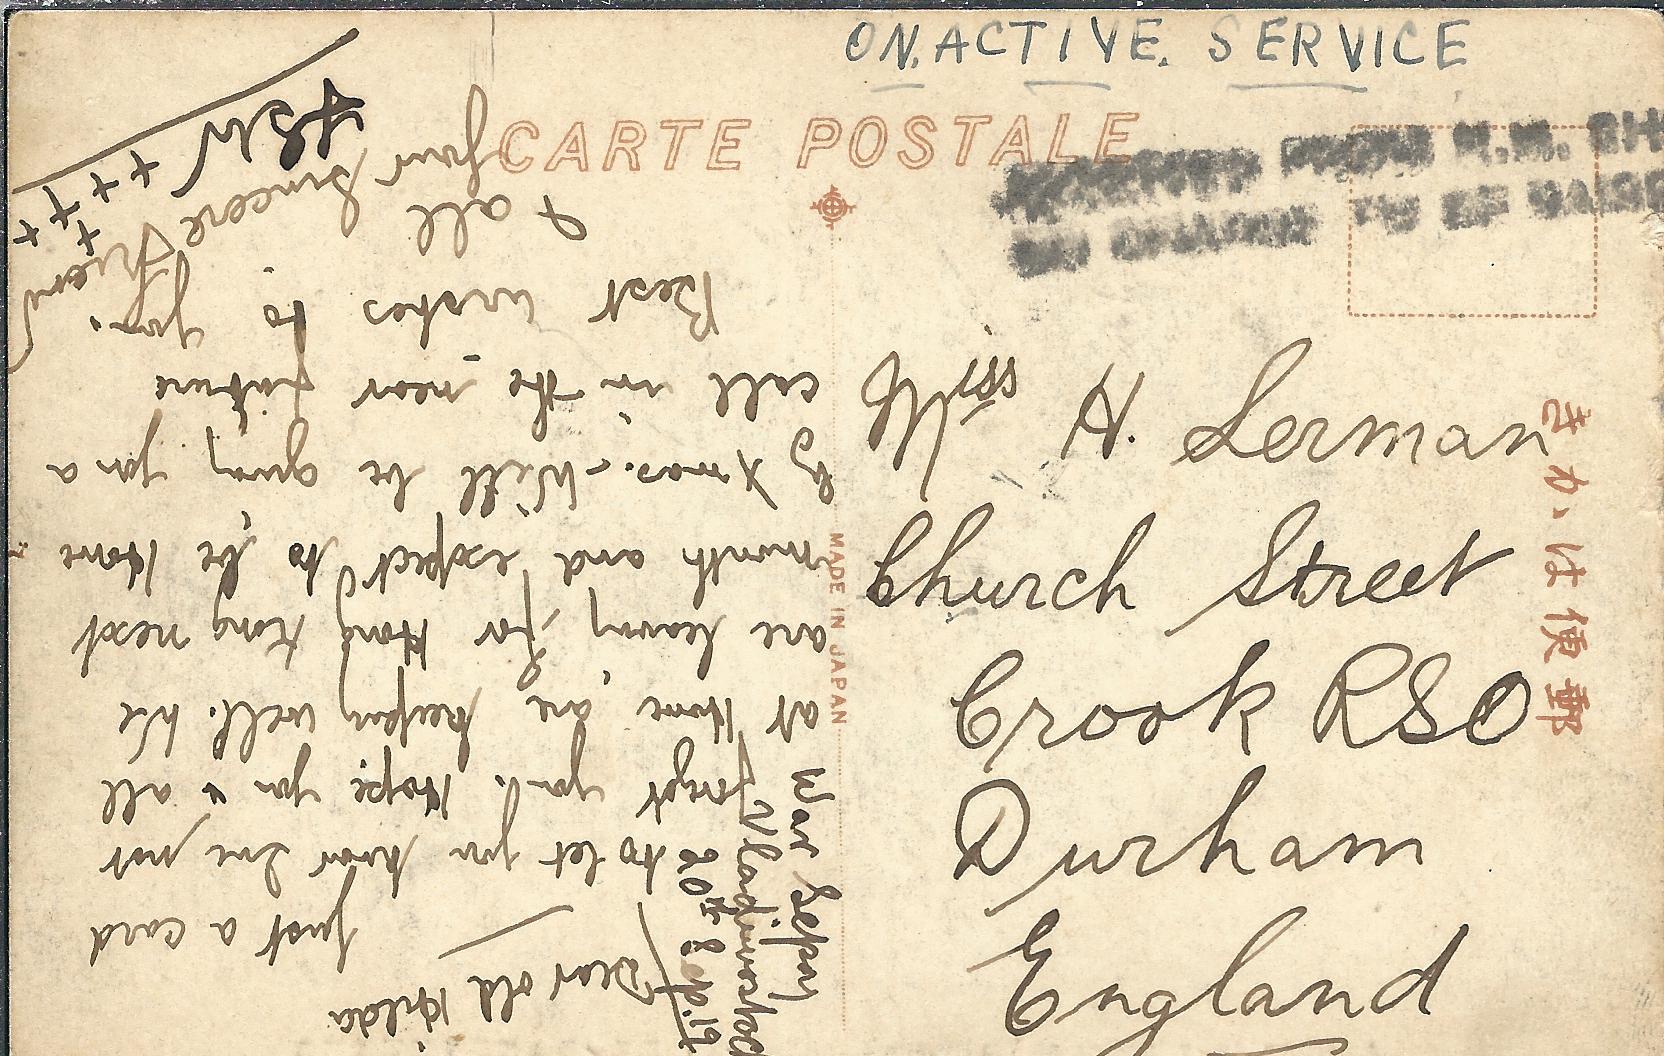 ON ACTIVE. SERVICE
CARTE POSTALE
FROM H.M. SHI
TO BE RAISED
Miss H. Lerman
Church Street
Crook RSO
Durham
England
郵便はがき
MADE IN JAPAN
War Sepoy
Vladivostock
Sep. 19
Dear old Hilda
Just a card
to let you know Ive not
forgot you. Hope you & all
at Home are keeping well. We
are leaving for Hong Kong next
month and expect to be Home
by Xmas. - Will be giving you a
call in the near future
Best wishes to you.
& all
Your Sincere Friend
FSW
+ + + + + +